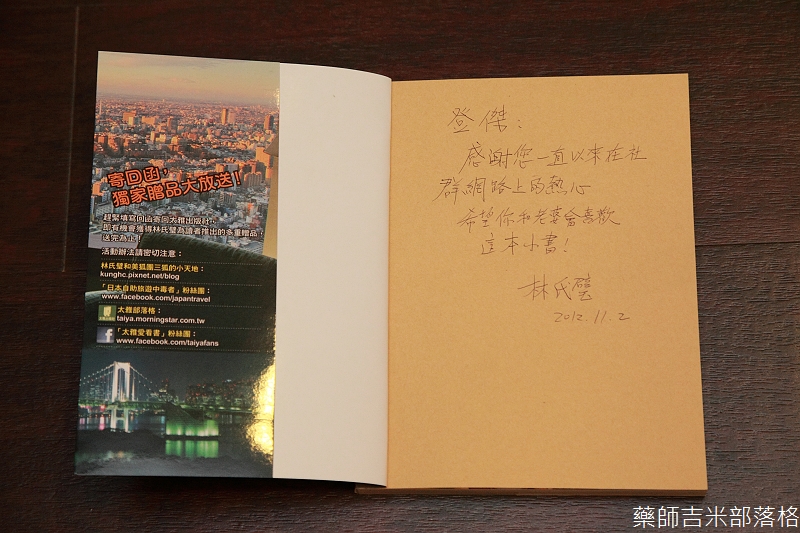 寄回函，
獨家贈品大放送！
趕緊填寫回函寄回太雅出版社，
即有機會獲得林氏璧為讀者推出的多重贈品，
送完為止！
活動辦法請密切注意：
林氏璧和美狐團三狐的小天地：
kunghc.pixnet.net/blog
「日本自助旅遊中毒者」粉絲團：
www.facebook.com/japantravel
太雅部落格：
taiya.morningstar.com.tw
「太雅愛看書」粉絲團：
www.facebook.com/taiyafans
登傑：
感謝您一直以來在社
群網路上的熱心
希望你和老婆會喜歡
這本小書！
林氏璧
2012.11.2
藥師吉米部落格